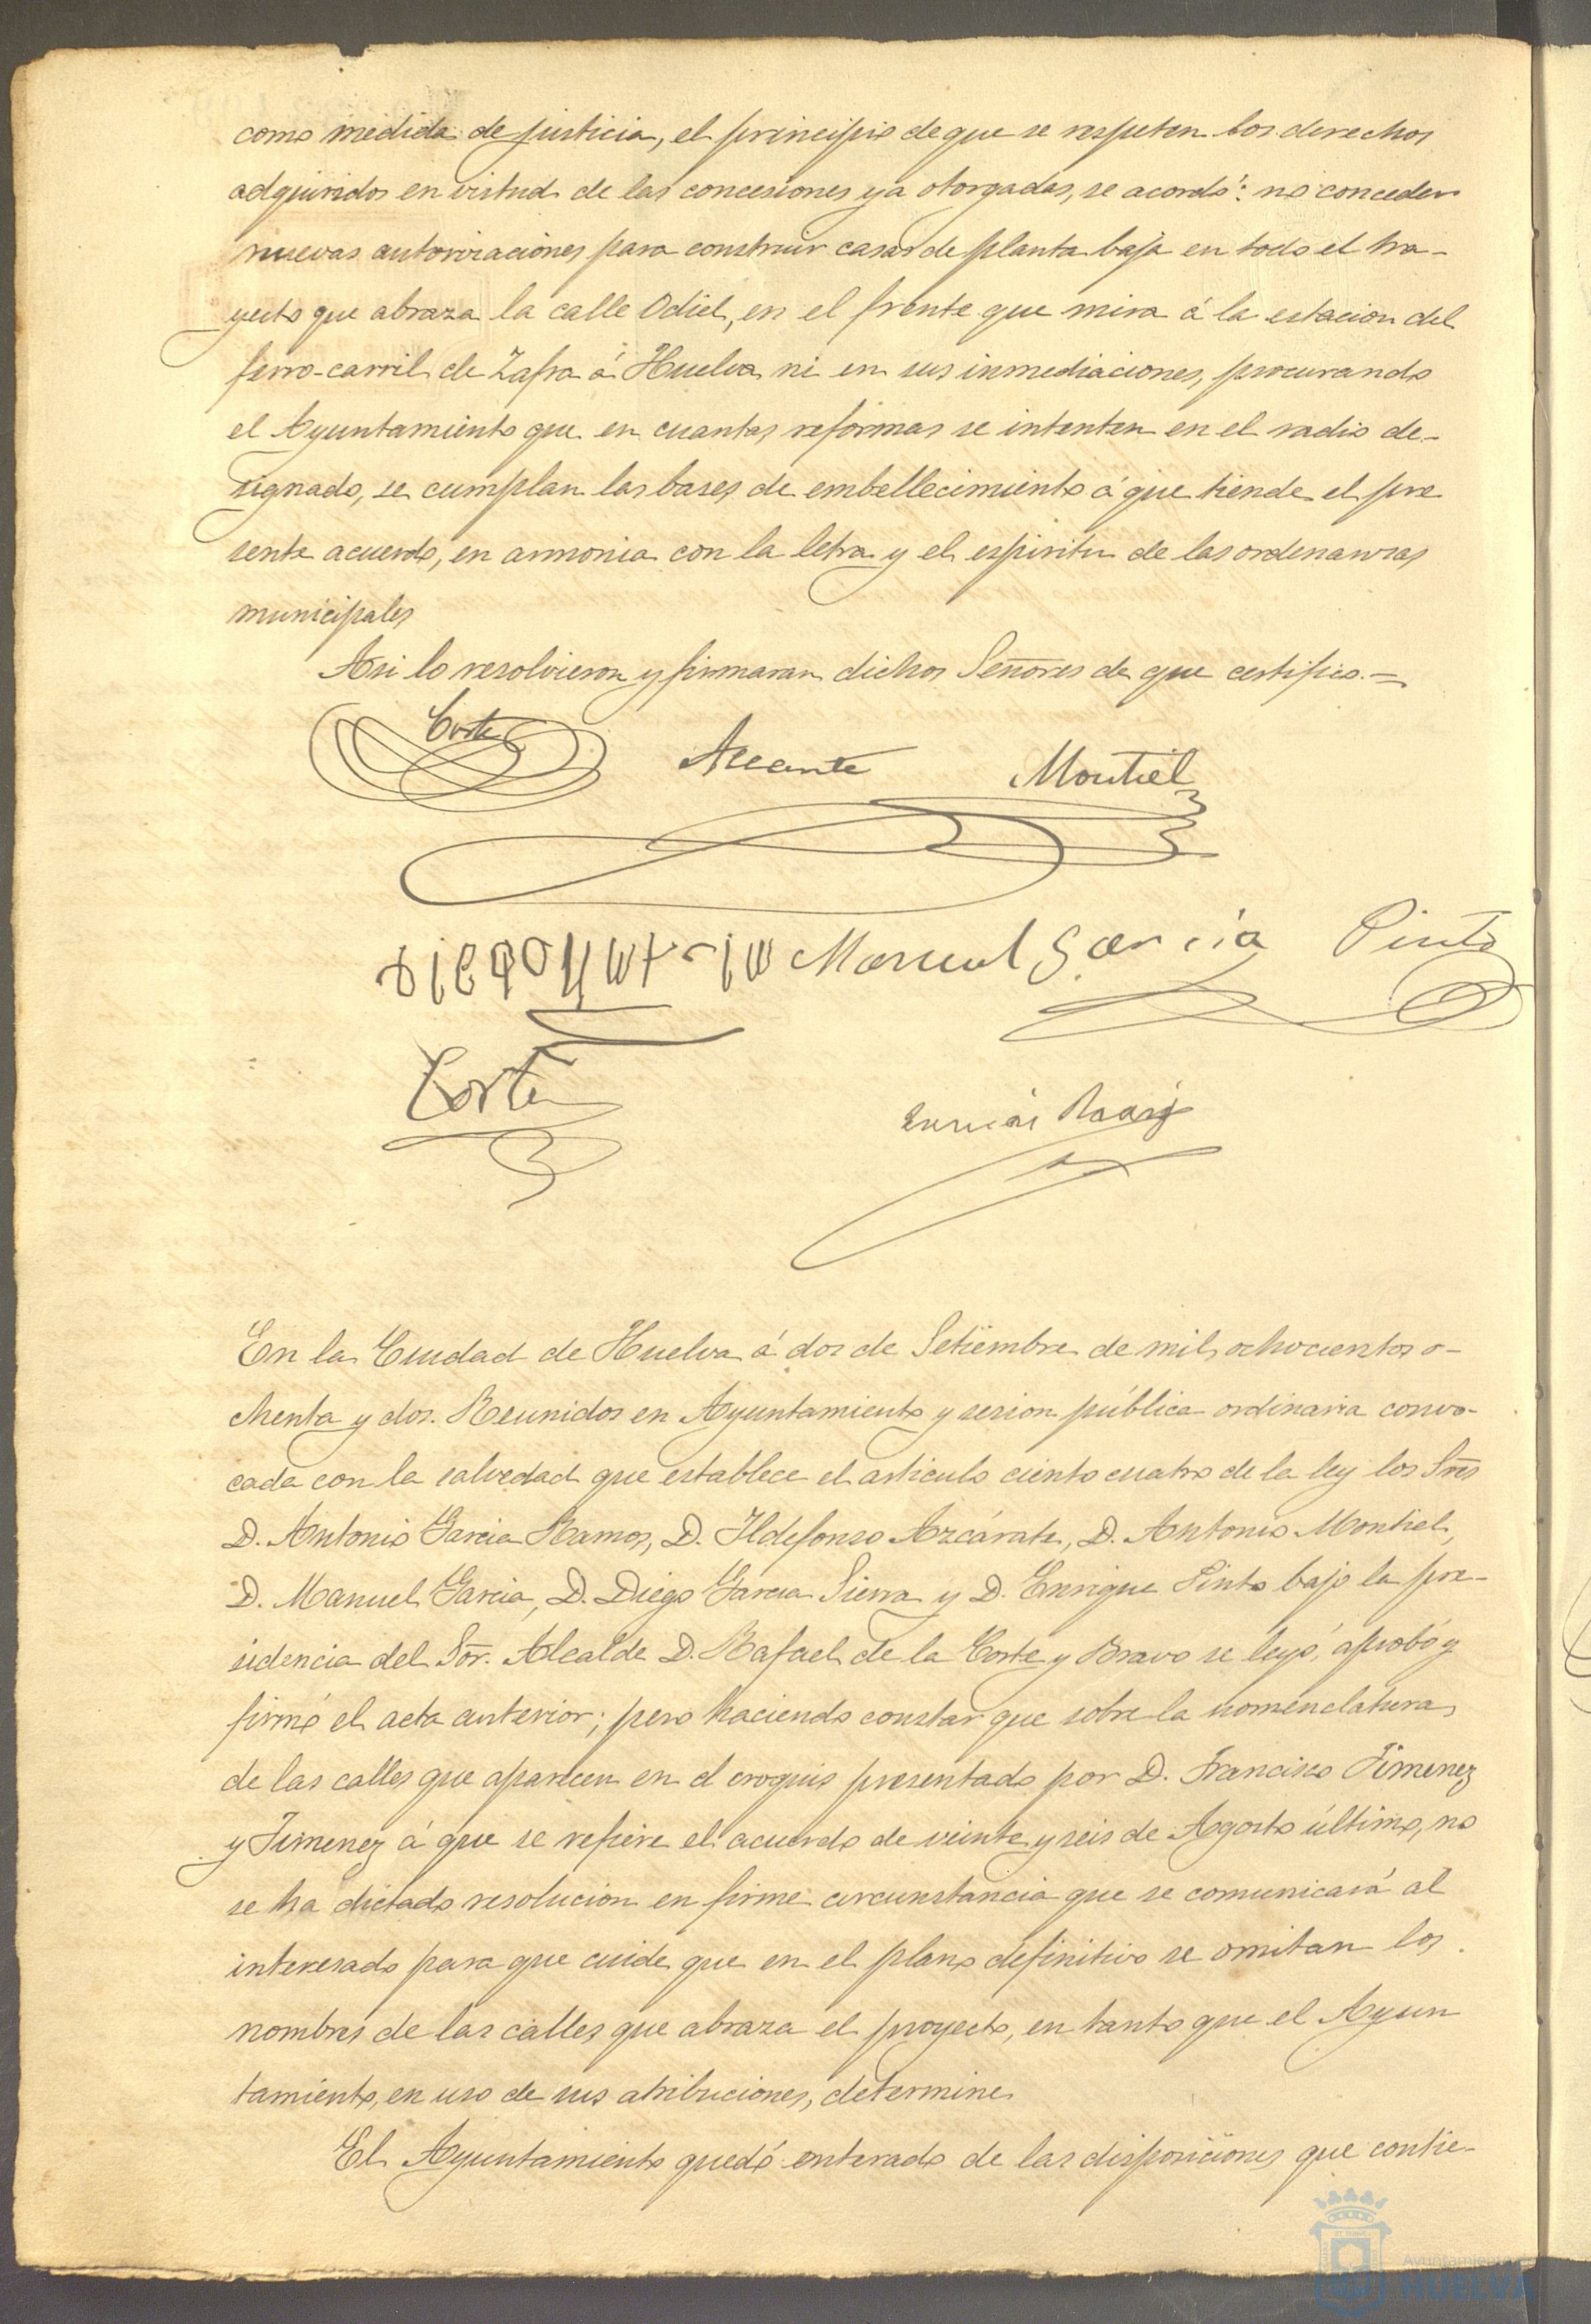 como medida de justicia, el principio de que se respeten los derechos
adquiridos en virtud de las concesiones ya otorgadas, se acordó: no conceder
nuevas autorizaciones para construir casas de planta baja en todo el tra-
yecto que abraza la calle Odiel, en el frente que mira á la estacion del
ferro-carril de Zafra á Huelva ni en sus inmediaciones, procurando
el Ayuntamiento que en cuantas reformas se intenten en el radio de-
signado, se cumplan las bases de embellecimiento á que tiende el pre
sente acuerdo, en armonia con la letra y el espiritu de las ordenanzas
municipales
Asi lo resolvieron y firmaran dichos Señores de que certifico.=
Corte
Montiel
Manuel Garcia Pinto
Corte
En la Ciudad de Huelva á dos de Setiembre de mil ochocientos o-
chenta y dos. Reunidos en Ayuntamiento y sesion pública ordinaria convo-
cada con la salvedad que establece el articulo ciento cuatro de la ley los Sres
D. Antonio Garcia Ramos, D. Ildefonso Azcárate, D. Antonio Montiel,
D. Manuel Garcia, D. Diego Garcia Sierra y D. Enrique Pinto bajo la pre-
sidencia del Sor. Alcalde D. Rafael de la Corte y Bravo se leyó, aprobó y
firmó el acta anterior; pero haciendo constar que sobre la nomenclatura
de las calles que aparecen en el croquis presentado por D. Francisco Jimenez
y Jimenez á que se refiere el acuerdo de veinte y seis de Agosto último, no
se ha dictado resolucion en firme circunstancia que se comunicará al
interesado para que cuide que en el plano definitivo se omitan los
nombres de las calles que abraza el proyecto, en tanto que el Ayun
tamiento, en uso de sus atribuciones, determine
El Ayuntamiento quedó enterado de las disposiciones que contie-
Ayuntamiento
HUELVA